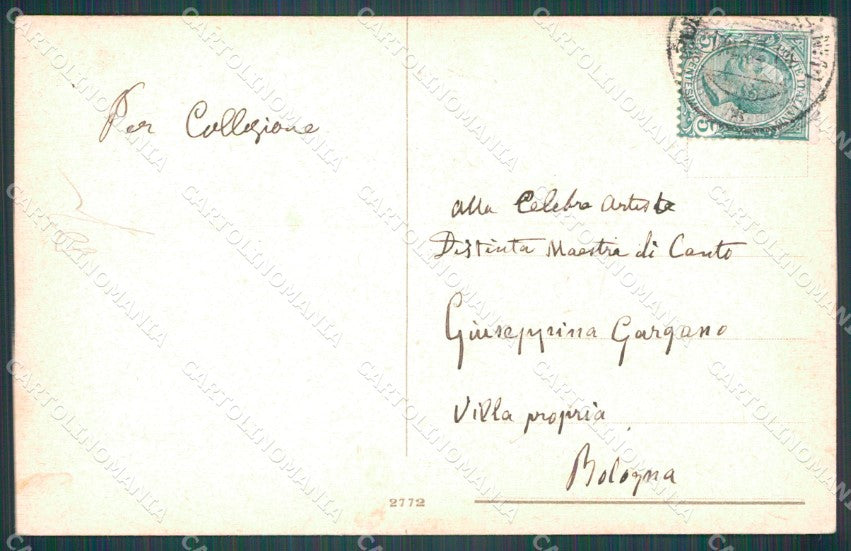 Per Collezione
alla Celebre Artista
Distinta Maestra di Canto
Giuseppina Gargano
Villa propria
Bologna
2772
CARTOLINOMANIA